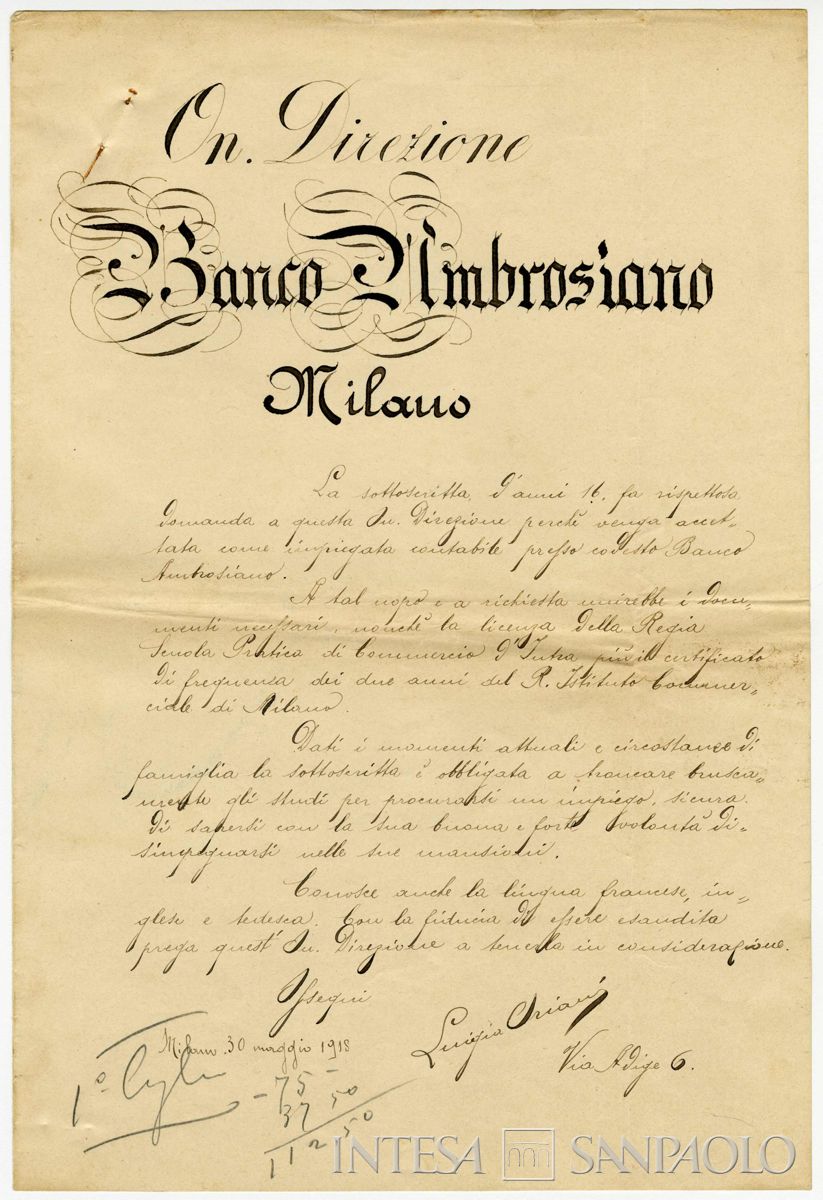 On. Direzione
Banco Ambrosiano
Milano
La sottoscritta, d'anni 16, fa rispettosa
domanda a questa On. Direzione perchè venga accet=
tata come impiegata contabile presso codesto Banco
Ambrosiano.
A tal uopo e a richiesta unirebbe i docu=
menti necessari, nonchè la licenza della Regia
Scuola Pratica di Commercio d'Intra più il certificato
di frequenza dei due anni del R. Istituto Commer=
ciale di Milano.
Dati i momenti attuali e circostanze di
famiglia la sottoscritta è obbligata a troncare brusca=
mente gli studi per procurarsi un impiego, sicura
di sapersi con la sua buona e forte volontà di=
simpegnarsi nelle sue mansioni.
Conosce anche la lingua francese, in=
glese e tedesca. Con la fiducia di essere esaudita
prega quest' On. Direzione a tenerla in considerazione.
Ossequi
Luigia Oriani
Milano 30 maggio 1918
Via Adige 6.
1° Luglio
- 75 -
37 50
112 50
INTESA SANPAOLO